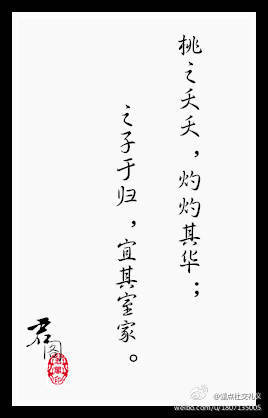 桃之夭夭，灼灼其华；
之子于归，宜其室家。
君
阅
@盟点社交礼义
weibo.com/u/1807135051